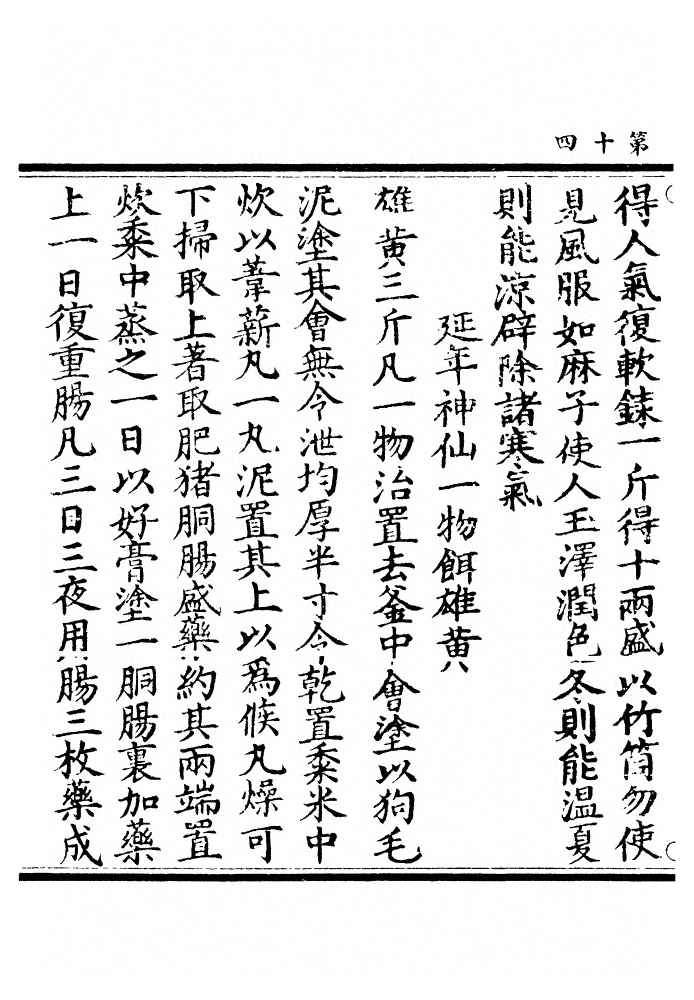 第十四
得人氣復軟鍒一斤得十兩盛以竹筒勿使
見風服如麻子使人玉澤潤色冬則能溫夏
則能涼辟除諸寒氣
延年神仙一物餌雄黃
雄黃三斤凡一物治置去釜中會塗以狗毛
泥塗其會無令泄均厚半寸令乾置黍米中
炊以葦薪丸一丸泥置其上以為候丸燥可
下掃取上著取肥猪胴腸盛藥約其兩端置
炊黍中蒸之一日以好膏塗一胴腸裏加藥
上一日復重腸凡三日三夜用腸三枚藥成